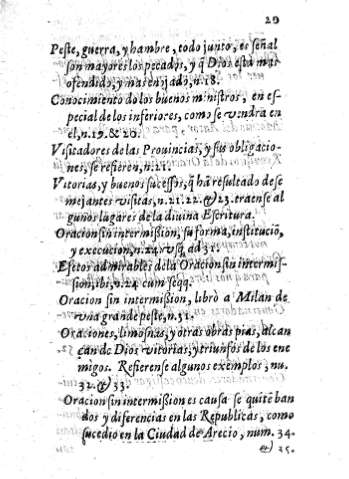 29
Peste, guerra, y hambre, todo junto, es señal
son mayores los pecados, y q̃ Dios esta mas
ofendido, y mas enojado, n.18.
Conocimiento dolos buenos ministros, en es-
pecial de los inferiores, como se vendra en
èl, n.19. & 20.
Visitadores de las Prouincias, y sus obligacio-
nes, se refieren, n.21.
Vitorias, y buenos sucessos, q̃ hà resultado de se
mejantes visitas, n.21.22. & 23. traense al
gunos lugares de la diuina Escritura.
Oracion sin intermißion, su forma, institucio,
y execucion, n.24. vsq, ad 31.
Efetos admirables dela Oracion sin intermis-
sion, ibi, n.24 cum seqq.
Oracion sin intermißion, librò a Milan de
vna grande peste, n.31.
Oraciones, limosnas, y otras obras pias, alcan
çan de Dios vitorias, y triunfos de los ene
migos. Refierense algunos exemplos, nu.
32. & 33.
Oracion sin intermißion es causa se quitẽ ban
dos y diferencias en las Republicas, como
sucedio en la Ciudad de Arecio, num. 34.
& 35.